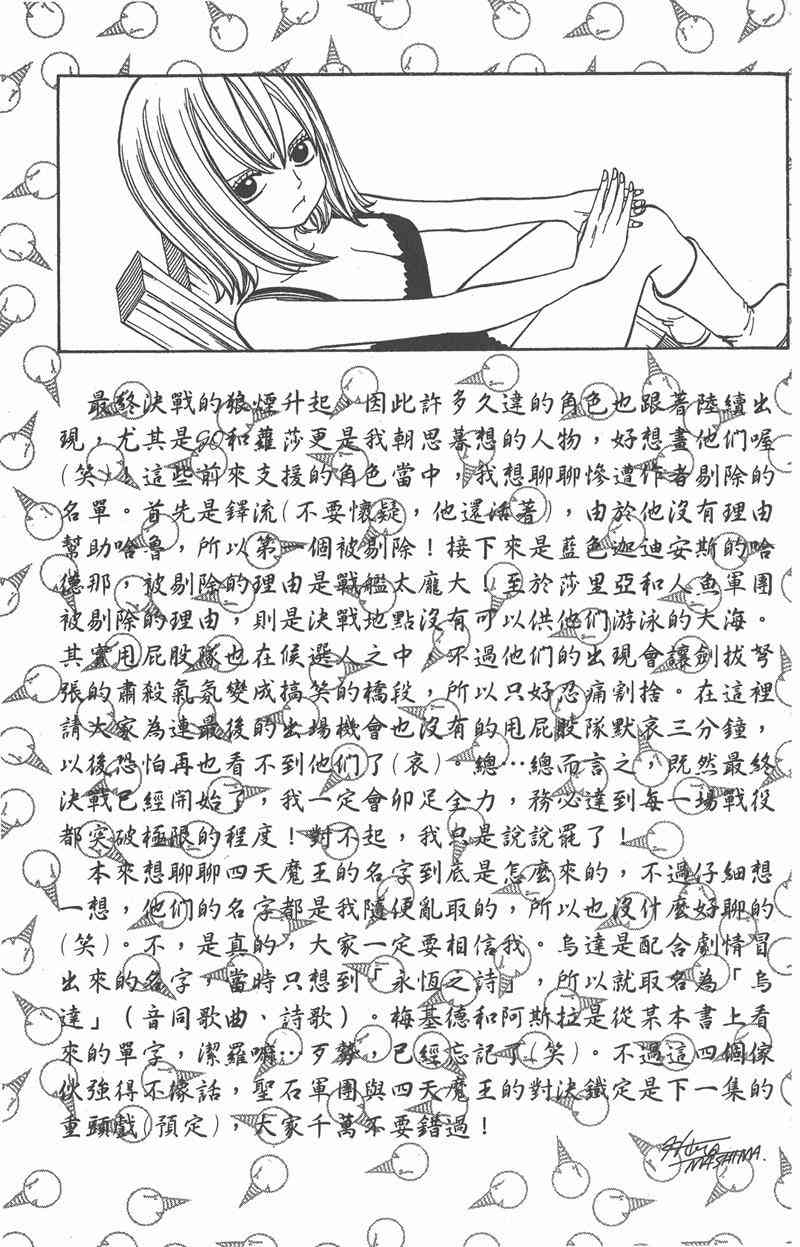 最終決戰的狼煙升起，因此許多久違的角色也跟著陸續出
現，尤其是GO和蘿莎更是我朝思暮想的人物，好想畫他們喔
(笑)！這些前來支援的角色當中，我想聊聊慘遭作者剔除的
名單。首先是鐸流(不要懷疑，他還活著)，由於他沒有理由
幫助哈魯，所以第一個被剔除！接下來是藍色迦迪安斯的哈
德那，被剔除的理由是戰艦太龐大！至於莎里亞和人魚軍團
被剔除的理由，則是決戰地點沒有可以供他們游泳的大海。
其實甩屁股隊也在候選人之中，不過他們的出現會讓劍拔弩
張的肅殺氣氛變成搞笑的橋段，所以只好忍痛割捨。在這裡
請大家為連最後的出場機會也沒有的甩屁股隊默哀三分鐘，
以後恐怕再也看不到他們了(哀)。總…總而言之，既然最終
決戰已經開始了，我一定會卯足全力，務必達到每一場戰役
都突破極限的程度！對不起，我只是說說罷了！
本來想聊聊四天魔王的名字到底是怎麼來的，不過仔細想
一想，他們的名字都是我隨便亂取的，所以也沒什麼好聊的
(笑)。不，是真的，大家一定要相信我。烏達是配合劇情冒
出來的名字，當時只想到「永恆之詩」，所以就取名為「烏
達」（音同歌曲、詩歌）。梅基德和阿斯拉是從某本書上看
來的單字，潔羅嘛…歹勢，已經忘記了(笑)。不過這四個傢
伙強得不像話，聖石軍團與四天魔王的對決鐵定是下一集的
重頭戲(預定)，大家千萬不要錯過！
Hiro
MASHIMA.